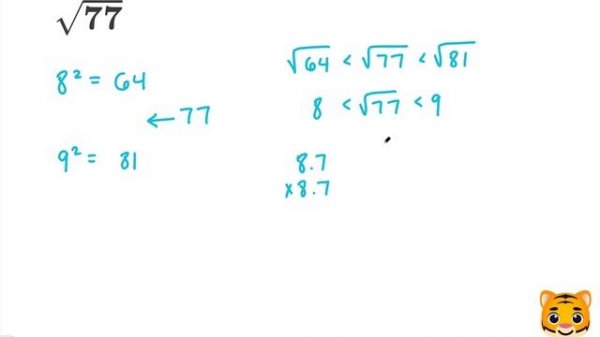 √77
8² = 64
← 77
9² = 81
√64 < √77 < √81
8 < √77 < 9
8.7
×8.7